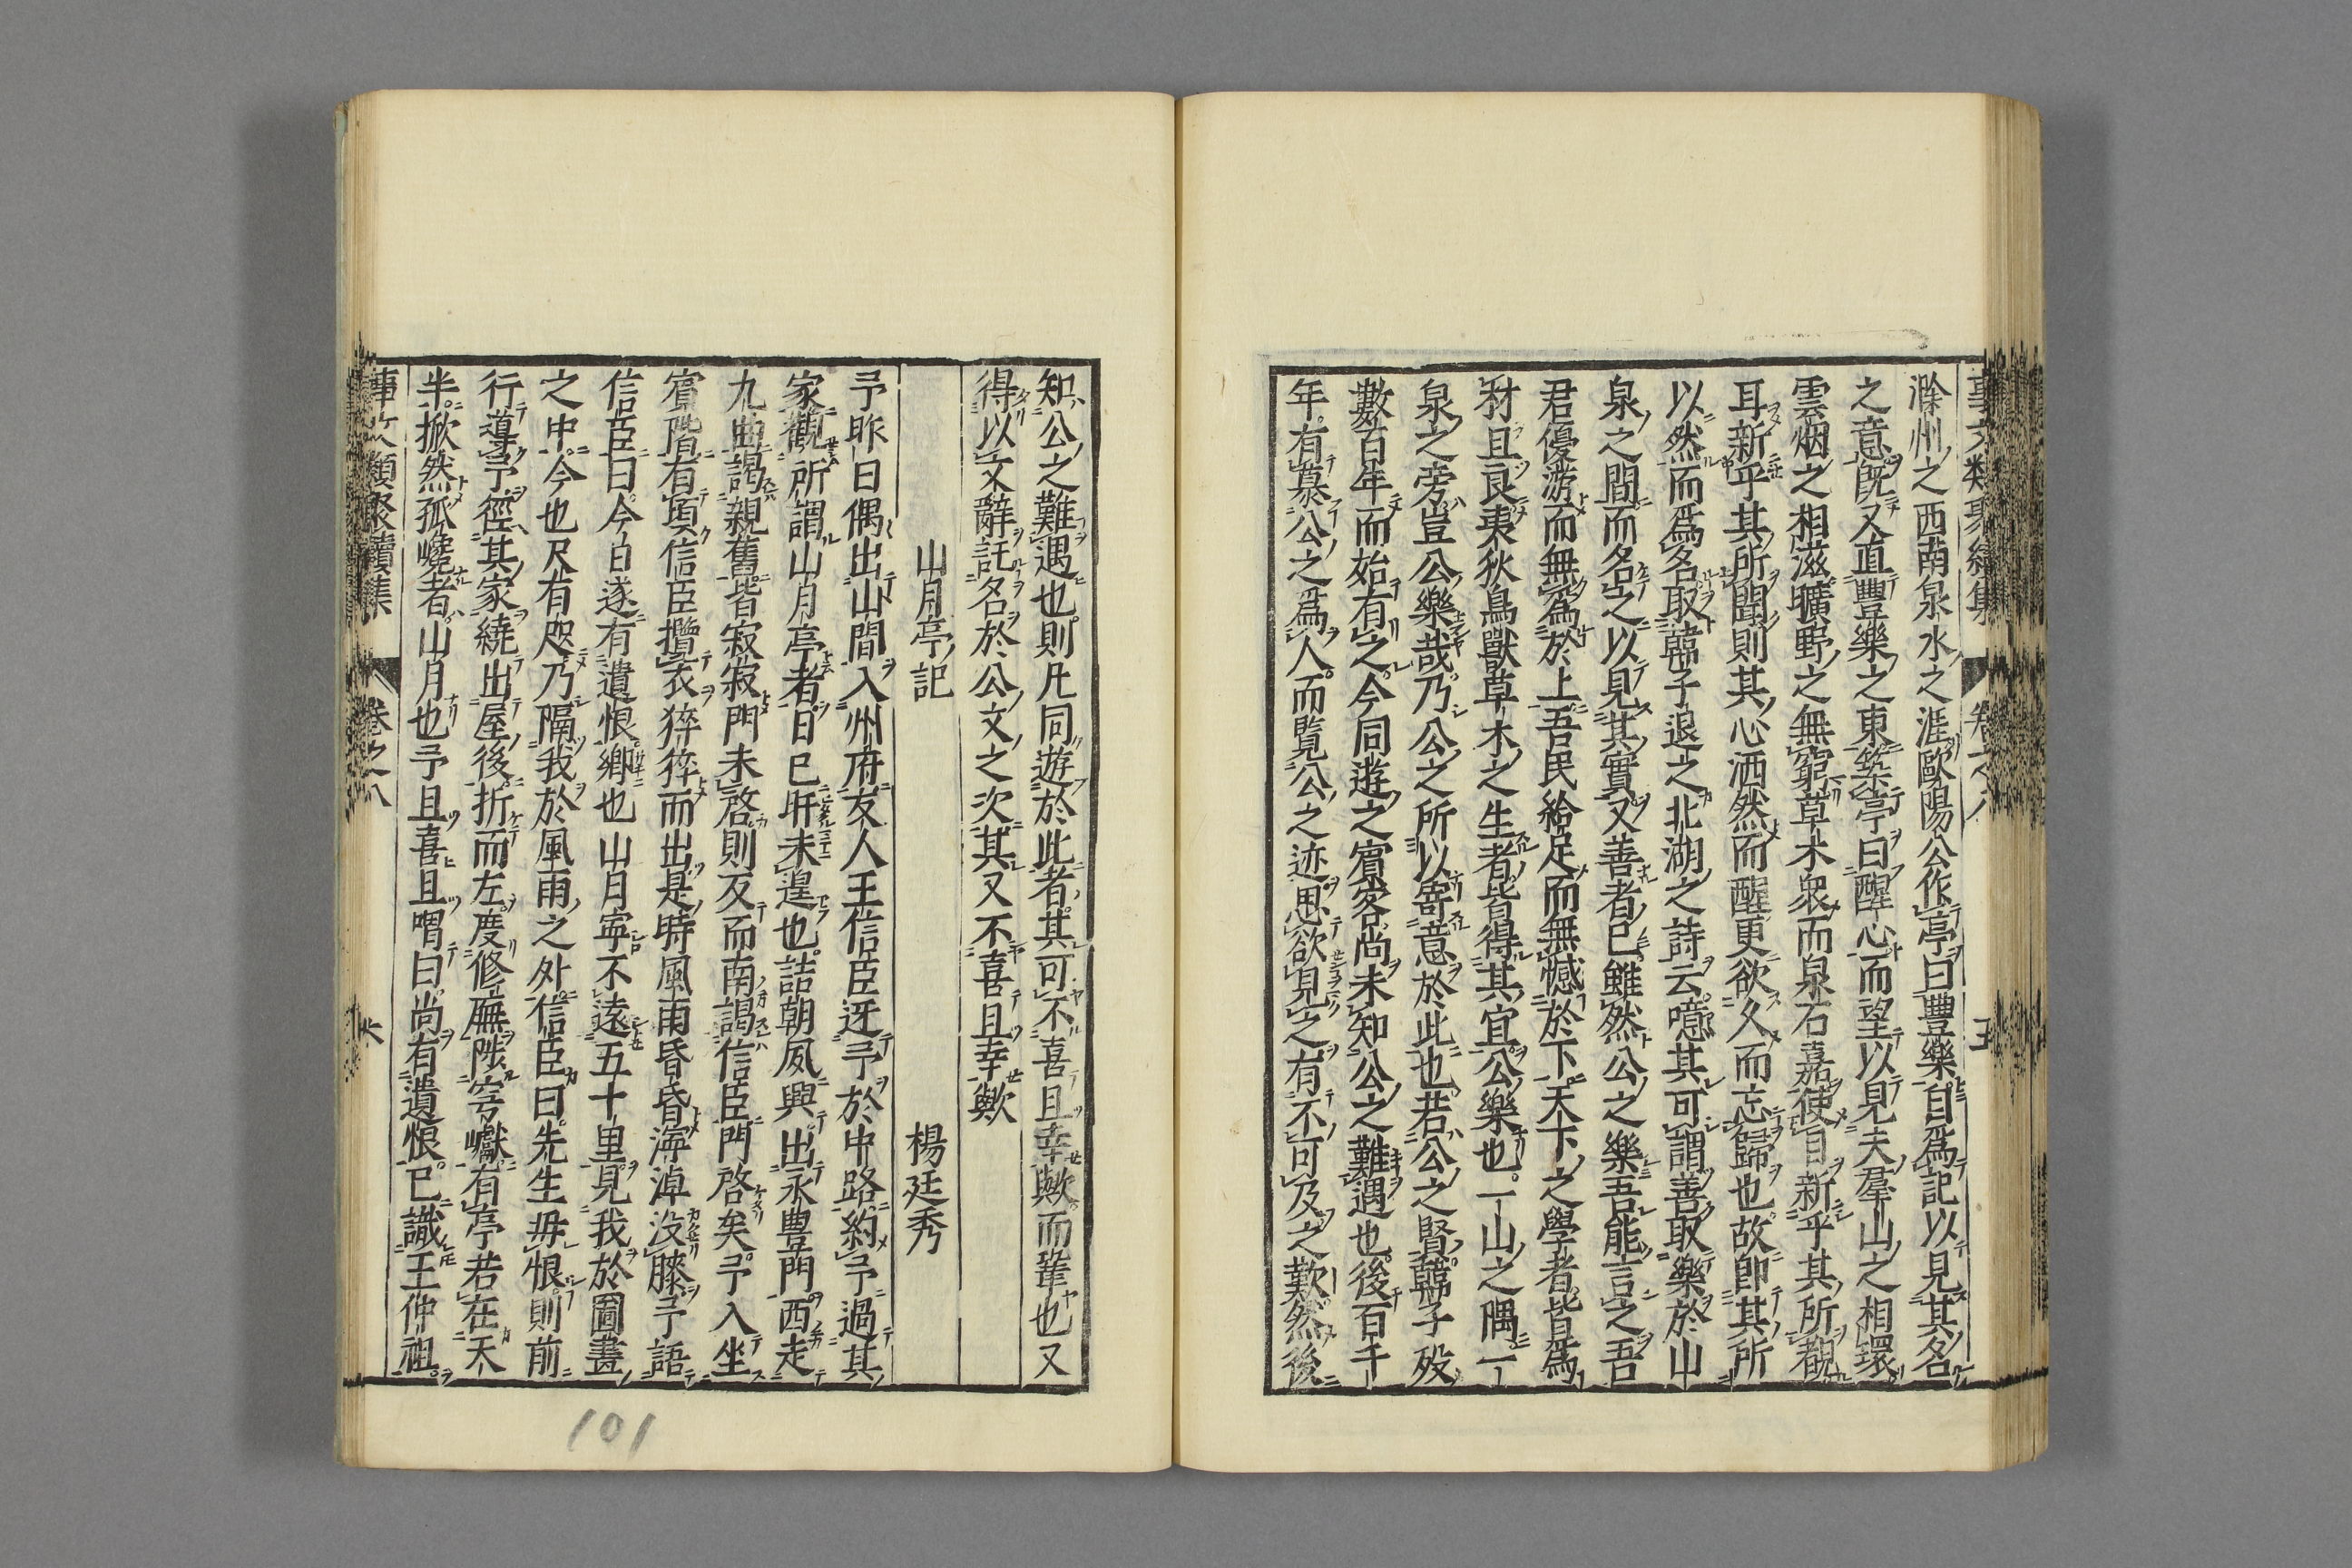 滁州之西南泉水之涯歐陽公作亭曰豐樂自爲記以見其名
之意旣又直豐樂之東築亭曰醒心而望以見夫羣山之相環
雲烟之相滋曠野之無窮草木衆而泉石嘉使目新乎其所覩
耳新乎其所聞則其心洒然而醒更欲久而忘歸也故卽其所
以然而爲名取韓子退之北湖之詩云噫其可謂善取樂於山
泉之間而名之以見其實又善者已雖然公之樂吾能言之吾
君優游而無爲於上吾民給足而無憾於下天下之學者皆爲
材且良夷狄鳥獸草木之生者皆得其宜公樂也一山之隅一
泉之旁豈公樂哉乃公之所以寄意於此也若公之賢韓子殁
數百年而始有之今同遊之賓客尚未知公之難遇也後百千
年有慕公之爲人而覽公之迹思欲見之有不可及之歎然後
知公之難遇也則凡同遊於此者其可不喜且幸歟而鞏也又
得以文辭託名於公文之次其又不喜且幸歟
山月亭記
楊廷秀
予昨日偶出山間入州府友人王信臣迓予於中路約予過其
家觀所謂山月亭者日已旰未遑也詰朝夙興出永豊門西走
九曲謁親舊皆寂寂門未啓則反而南謁信臣門啓矣予入坐
賓階有頃信臣攬衣猝猝而出是時風雨昏昏海淖没膝予語
信臣曰今日遂有遺恨鄉也山月寧不遠五十里見我於圖畫
之中今也尺有咫乃隔我於風雨之外信臣曰先生毋恨則前
行導予徑其家繞出屋後折而左度修廡陟穹巘有亭若在天
半掀然孤巉者山月也予且喜且喟曰尚有遺恨已識王仲祖
事文類聚續集
卷之八
六